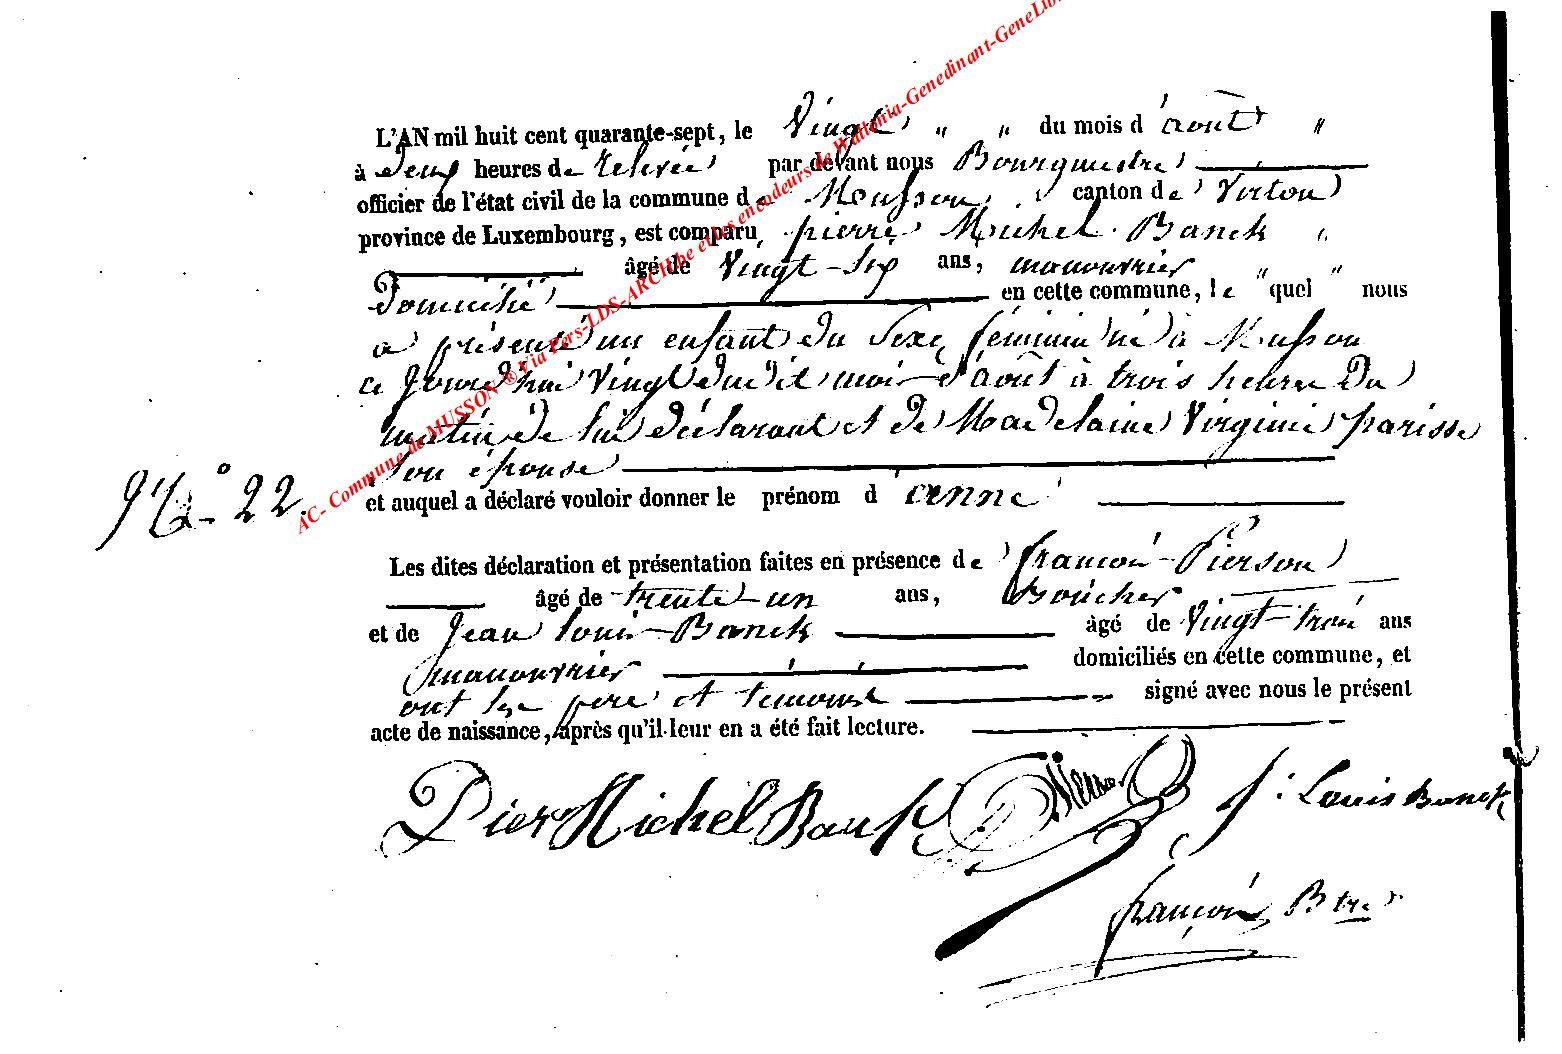 AC- Commune de MUSSON ® Via Pers-LDS-ARCH.be et les encodeurs de Wallonia-Genedinant-GeneLib
L'AN mil huit cent quarante-sept, le Vingt " " du mois d'août "
à deux heures de relevée par devant nous Bourgmestre
officier de l'état civil de la commune de Musson canton de Virton
province de Luxembourg, est comparu pierre Michel Banck "
âgé de Vingt-six ans, manouvrier " "
domicilié en cette commune, le quel nous
a présenté un enfant du sexe féminin né à Musson
ce jourd'hui vingt dudit mois d'août à trois heures du
matin de lui déclarant et de Madelaine Virginie parisse
son épouse
Nº 22.
et auquel a déclaré vouloir donner le prénom d'anne
Les dites déclaration et présentation faites en présence de françois Pierson
âgé de trente-un ans, Boucher
et de Jean Louis Banck âgé de Vingt-trois ans
manouvrier domiciliés en cette commune, et
ont les père et témoins signé avec nous le présent
acte de naissance, après qu'il leur en a été fait lecture.
Pier Michel Banck Pierson J: Louis Banck
françois Btre